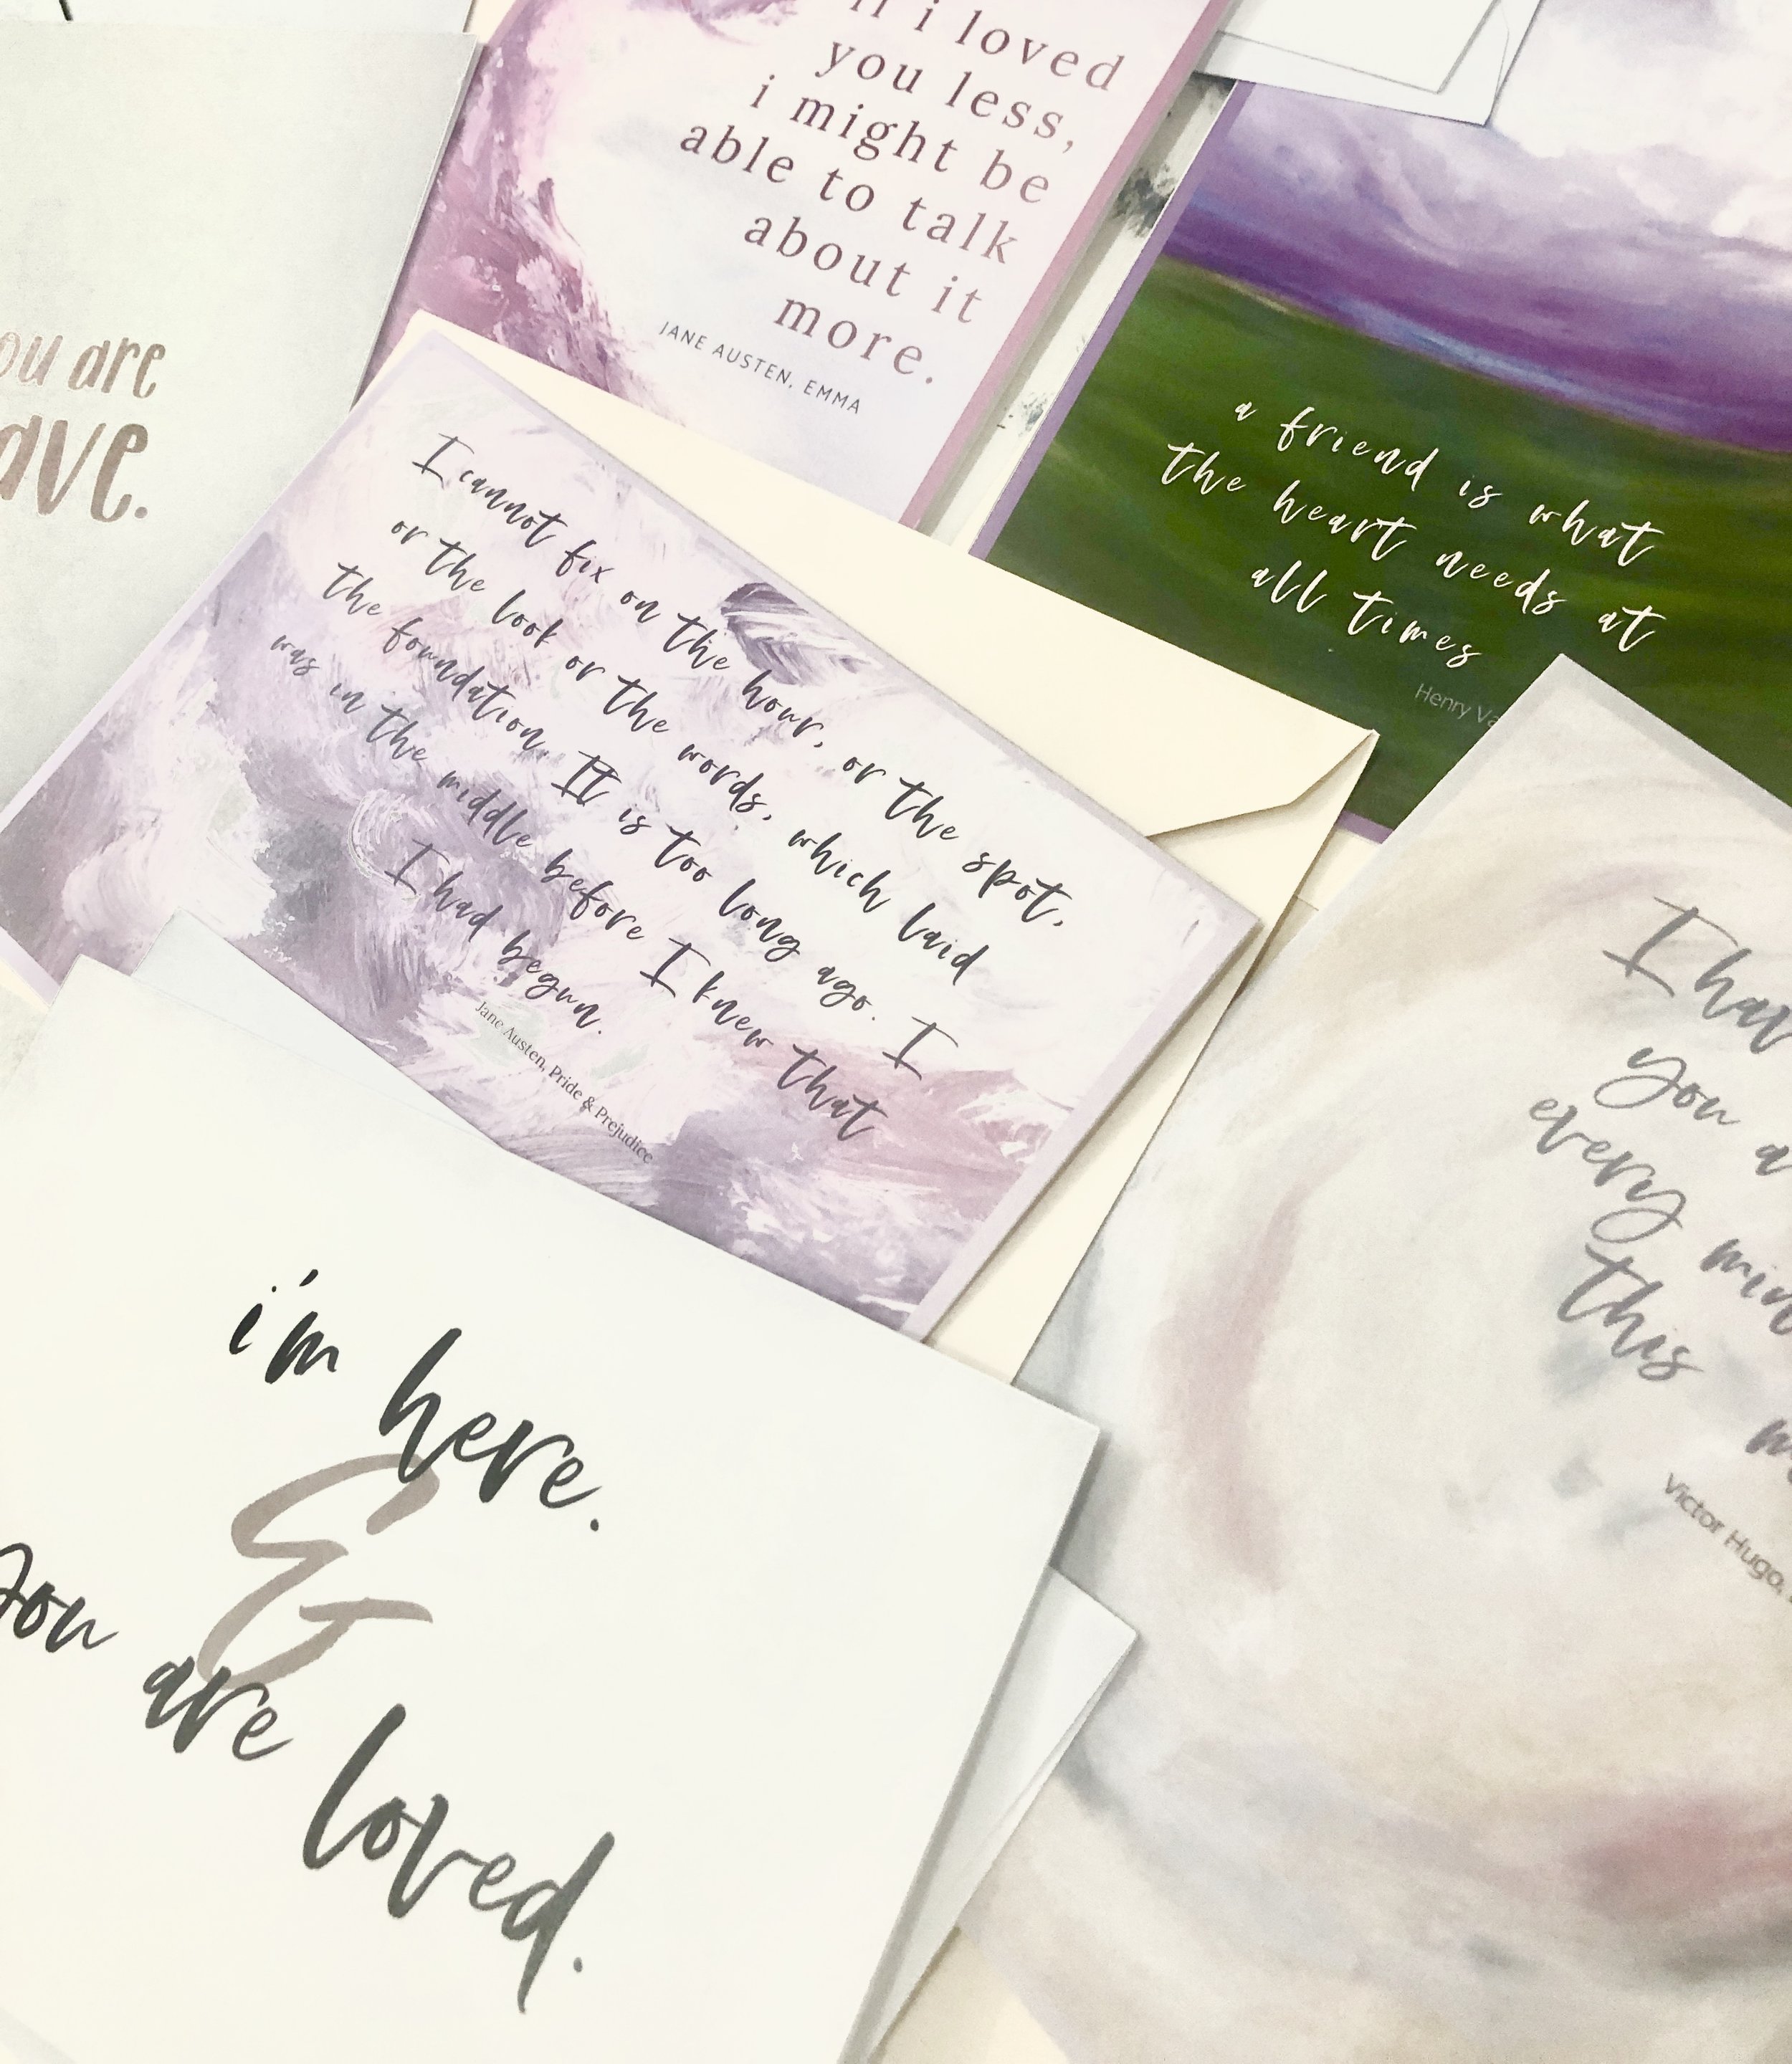 are
if i loved
you less,
i might be
able to talk
about it
more.
JANE AUSTEN, EMMA
a friend is what
the heart needs at
all times
Henry
I cannot fix on the hour, or the spot,
or the look or the words, which laid
the foundation. It is too long ago. I
was in the middle before I knew that
I had begun.
Jane Austen, Pride & Prejudice
I
you
every
this
Victor Hugo,
i'm here.
&
you are loved.